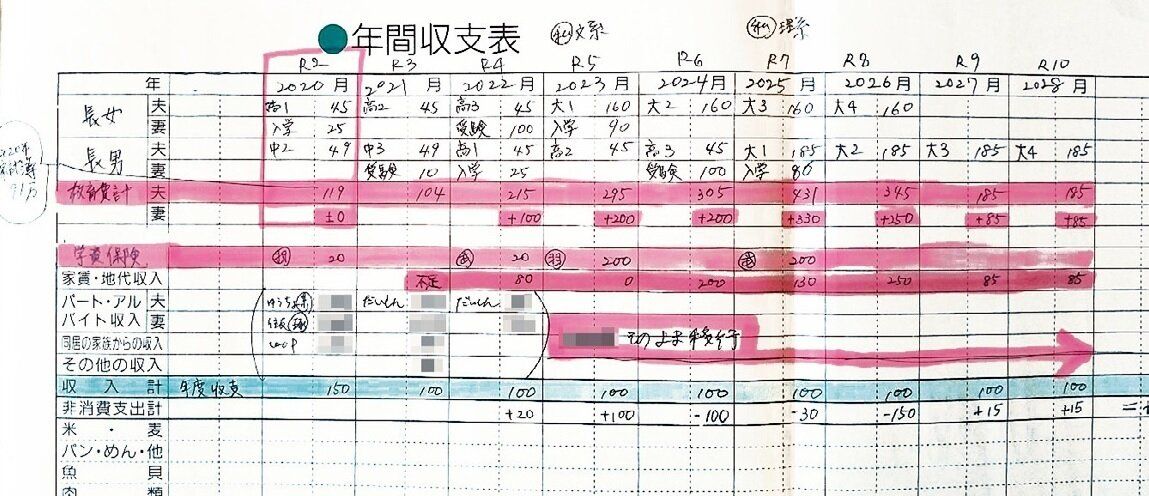 ●年間収支表 ㊑文系 ㊑理系
R2 R3 R4 R5 R6 R7 R8 R9 R10
年 2020月 2021月 2022月 2023月 2024月 2025月 2026月 2027月 2028月
長女 夫 高1 45 高2 45 高3 45 大1 160 大2 160 大3 160 大4 160
妻 入学 25 受験 100 入学 90
長男 夫 中2 49 中3 49 高1 45 高2 45 高3 45 大1 185 大2 185 大3 185 大4 185
妻 受験 10 入学 25 受験 100 入学 80
2020年
91万
教育費計 夫 119 104 215 295 305 431 345 185 185
妻 ±0 +100 +200 +200 +330 +250 +85 +85
学資保険 20 20 200 200
家賃・地代収入 不足 80 0 200 130 250 85 85
パート・アル 夫 ゆうちょ だいしん だいしん
バイト収入 妻
同居の家族からの収入 そのまま移行
その他の収入
収入計 年度収支 150 100 100 100 100 100 100 100 100
非消費支出計 +20 +100 -100 -30 -150 +15 +15 =
米・麦
パン・めん・他
魚貝
肉類